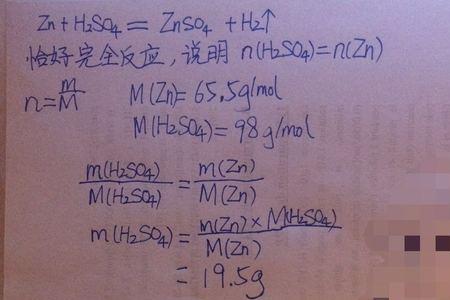 Zn + H₂SO₄ = ZnSO₄ + H₂↑
恰好完全反应, 说明 n(H₂SO₄) = n(Zn)
n = m/M M(Zn) = 65.5g/mol
M(H₂SO₄) = 98g/mol
m(H₂SO₄)/M(H₂SO₄) = m(Zn)/M(Zn)
m(H₂SO₄) = m(Zn) × M(H₂SO₄)/M(Zn)
= 19.5g